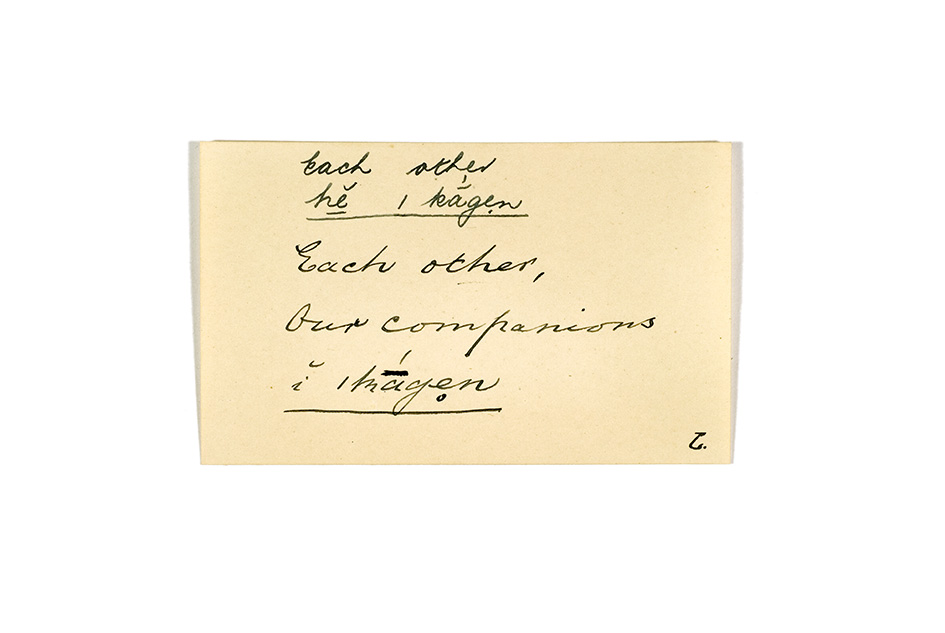 Each other
hĕ ı kăgen
Each other,
Our companions
ĭ ıkágen
Z.